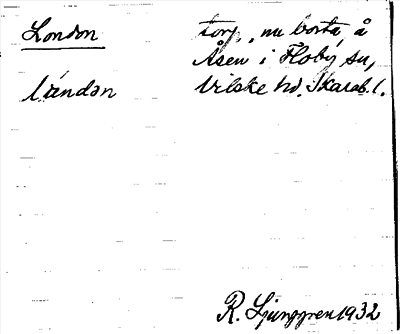 London torp, nu borta, å
Åsen i Floby sn,
lándən Vilske hd, Skarab. l.
R. Ljunggren 1932